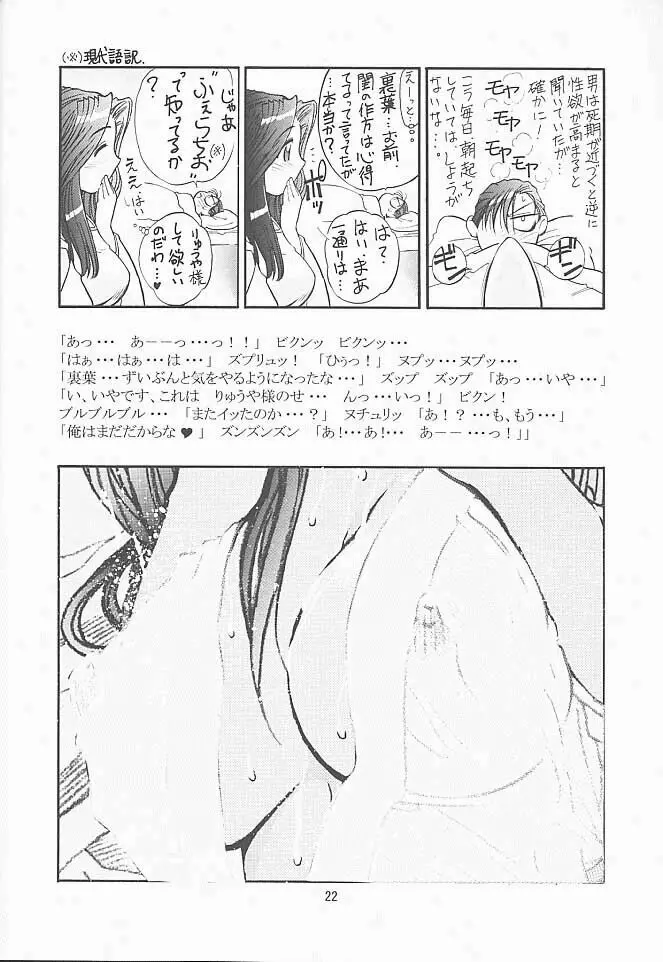 (※)現代語訳.
男は死期が近づくと逆に
性欲が高まると
聞いていたが…
確かに!
こう毎日、朝起ち
していては、しようが
ないな…
モヤ
モヤ
モヤ
ギン
ギン
えーっと。。。
裏葉…お前、
閨の作方は心得
てるって言ってたが
…本当か?
ポッ
は?
はい、まあ
一通りは…
じゃあ
“ぶぇらちお”(※)
って知ってるか
?
ええ、はい
りゅうや様
して欲しい
のだわ…♥
「あっ・・・　あ－－っ・・・っ！！」 ビクンッ　ビクンッ・・・
「はぁ・・・はぁ・・・は・・・」 ズプリュッ！ 「ひぅっ！」 ヌプッ・・・ヌプッ・・・
「裏葉・・・ずいぶんと気をやるようになったな・・・」 ズップ　ズップ 「あっ・・・いや・・・」
「い、いやです、これは　りゅうや様のせ・・・　んっ・・・いっ！」 ビクン！
ブルブルブル・・・ 「またイッたのか・・・？」 ヌチュリッ 「あ！？・・・も、もう・・・」
「俺はまだだからな♥」 ズンズンズン 「あ！・・・あ！・・・　あ－－・・・っ！」」
22